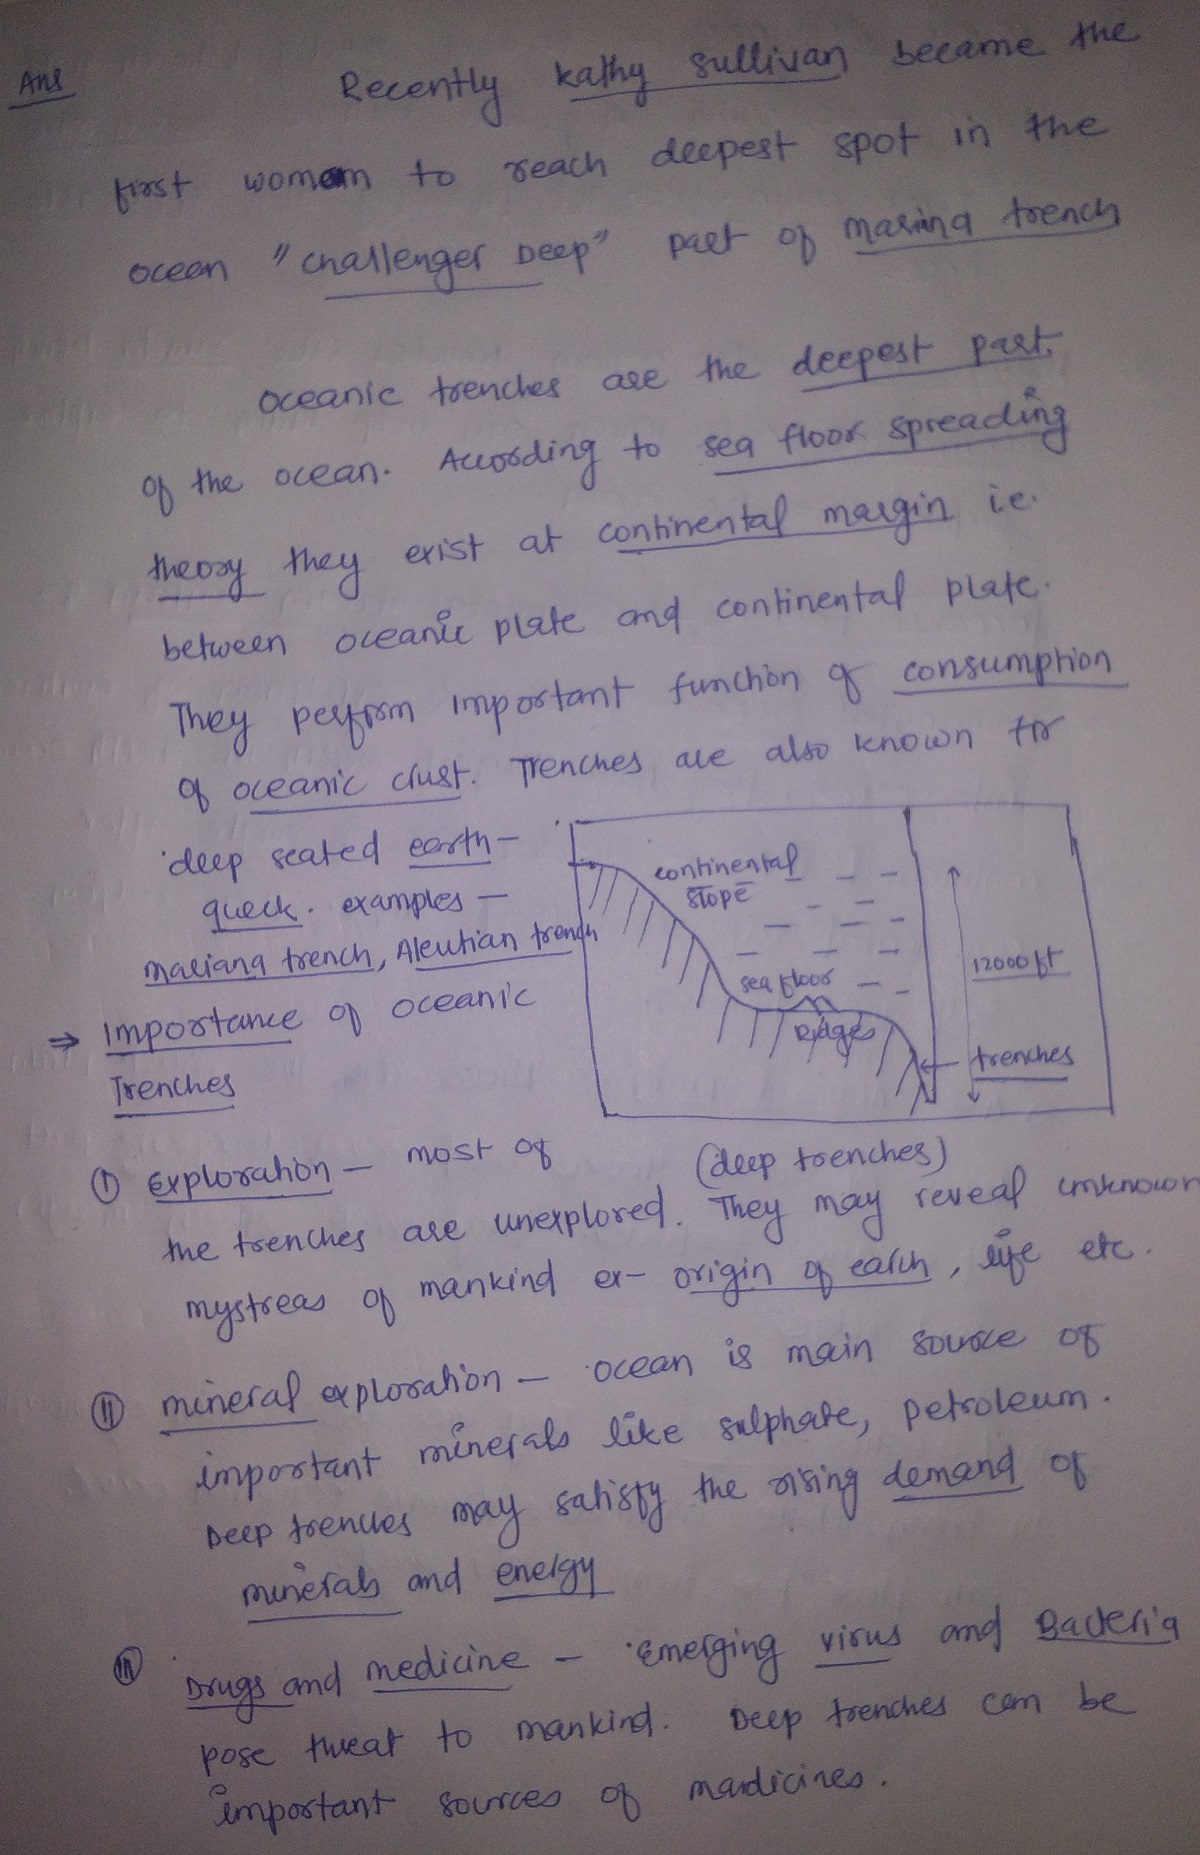 Ans
Recently kathy sullivan became the
first woman to reach deepest spot in the
ocean "challenger Deep" part of marina trench
oceanic trenches are the deepest part
of the ocean. According to sea floor spreading
theory they exist at continental margin i.e.
between oceanic plate and continental plate.
They perform important function of consumption
of oceanic crust. Trenches are also known for
deep seated earth-
queck. examples -
mariana trench, Aleutian trench
continental
slope
sea floor
Ridges
12000 ft
trenches
(deep trenches)
⇒ Importance of oceanic
Trenches
(I) exploration - most of
the trenches are unexplored. They may reveal unknown
mystreas of mankind ex- origin of earth, life etc.
(II) mineral exploration - ocean is main source of
important minerals like sulphate, petroleum.
Deep trenches may satisfy the rising demand of
minerals and energy
(III) Drugs and medicine - Emerging virus and Bacteria
pose threat to mankind. Deep trenches can be
important sources of mardicines.